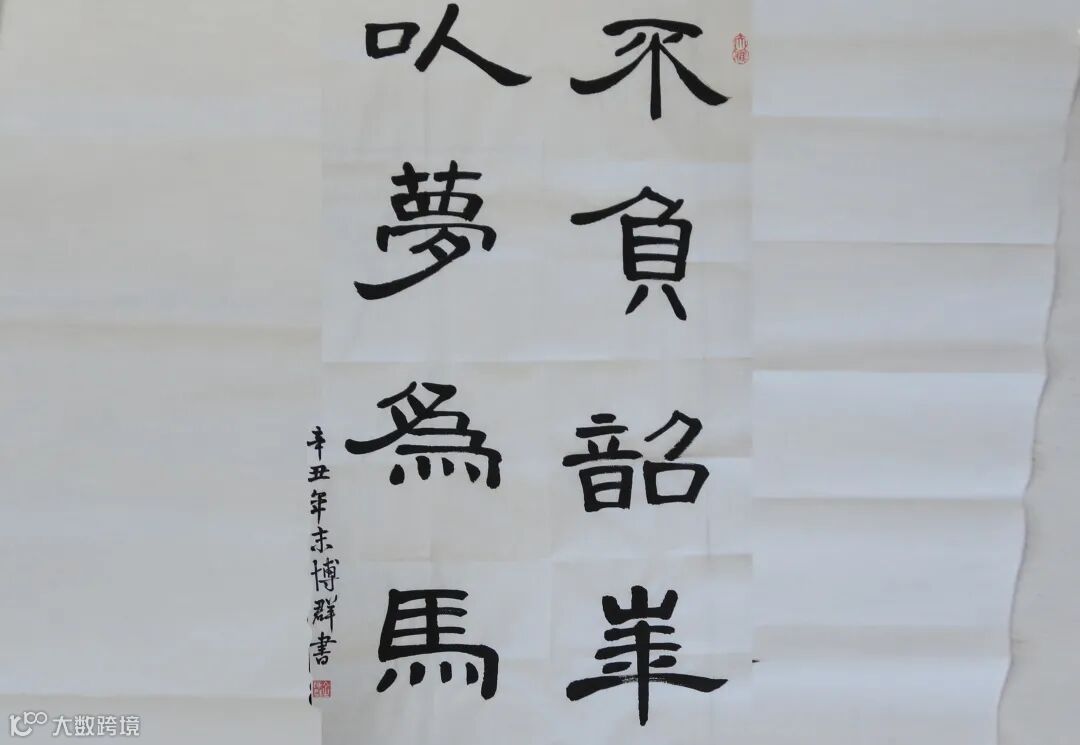 不負韶華
以夢爲馬
辛丑年末博群書
大数跨境